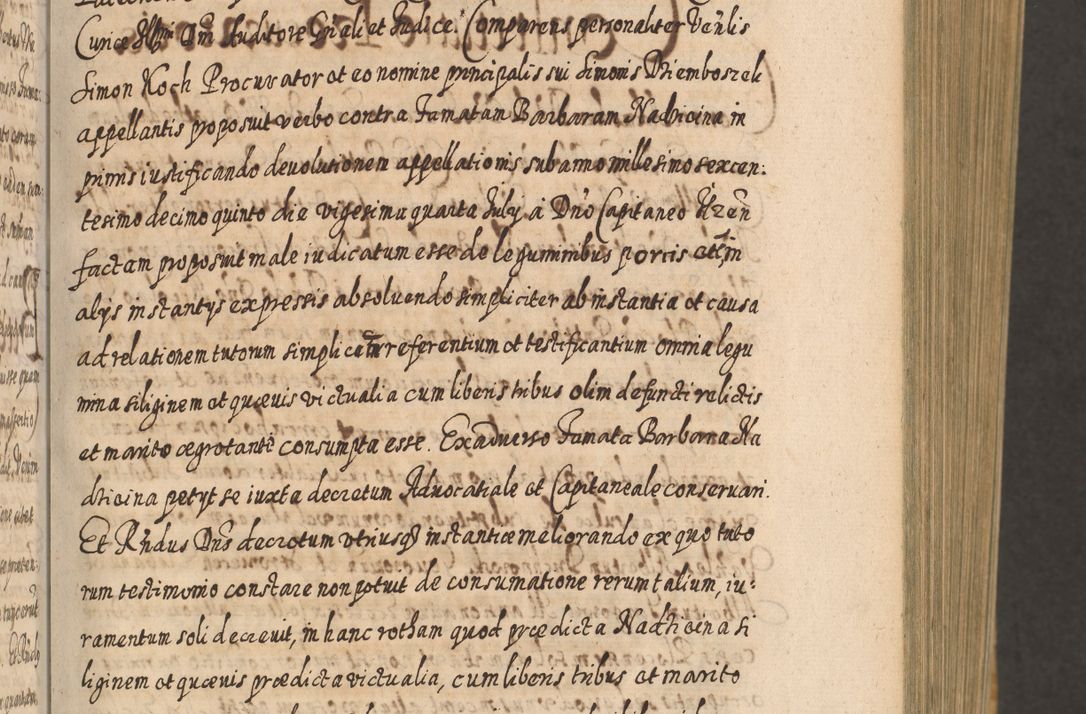 Curiæ Illmi Dni Auditore Gnali et Iudice. Comparens personaliter Venlis
Simon Koch Procurator et eo nomine principalis sui Simonis Dziemboszek
appellantis proposuit verbo contra Famatam Barbaram Nadzicina in
primis iustificando deuolutionem appellationis sub anno millesimo sexcen:
tesimo decimo quinto die vigesima quarta July à Dno Capitaneo
factam proposuit male iudicatum esse de leguminibus porcis et in
alys instantys expressis absoluendo simpliciter ab instantia et causa
ad relationem tutorum simplicem referentium et testificantium omnia legu
mina siliginem et quæuis victualia cum liberis tribus olim defuncti relictis
et marito ægrotante consumpta esse. Ex aduerso Famata Barbara Na
dzicina petyt se iuxta decretum Aduocatiale et Capitaneale conseruari.
Et Rndus Dns decretum vtriusq instantiæ meliorando ex quo tuto
rum testimonio constare non potuit de consumatione rerum talium, iu:
ramentum soli decreuit, in hanc rotham quod prædicta Nadzicina si
liginem et quæuis prædicta victualia, cum liberis tribus et marito